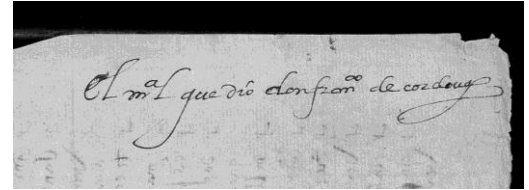 El mᵃl que dio don franᶜᵒ de cordoua